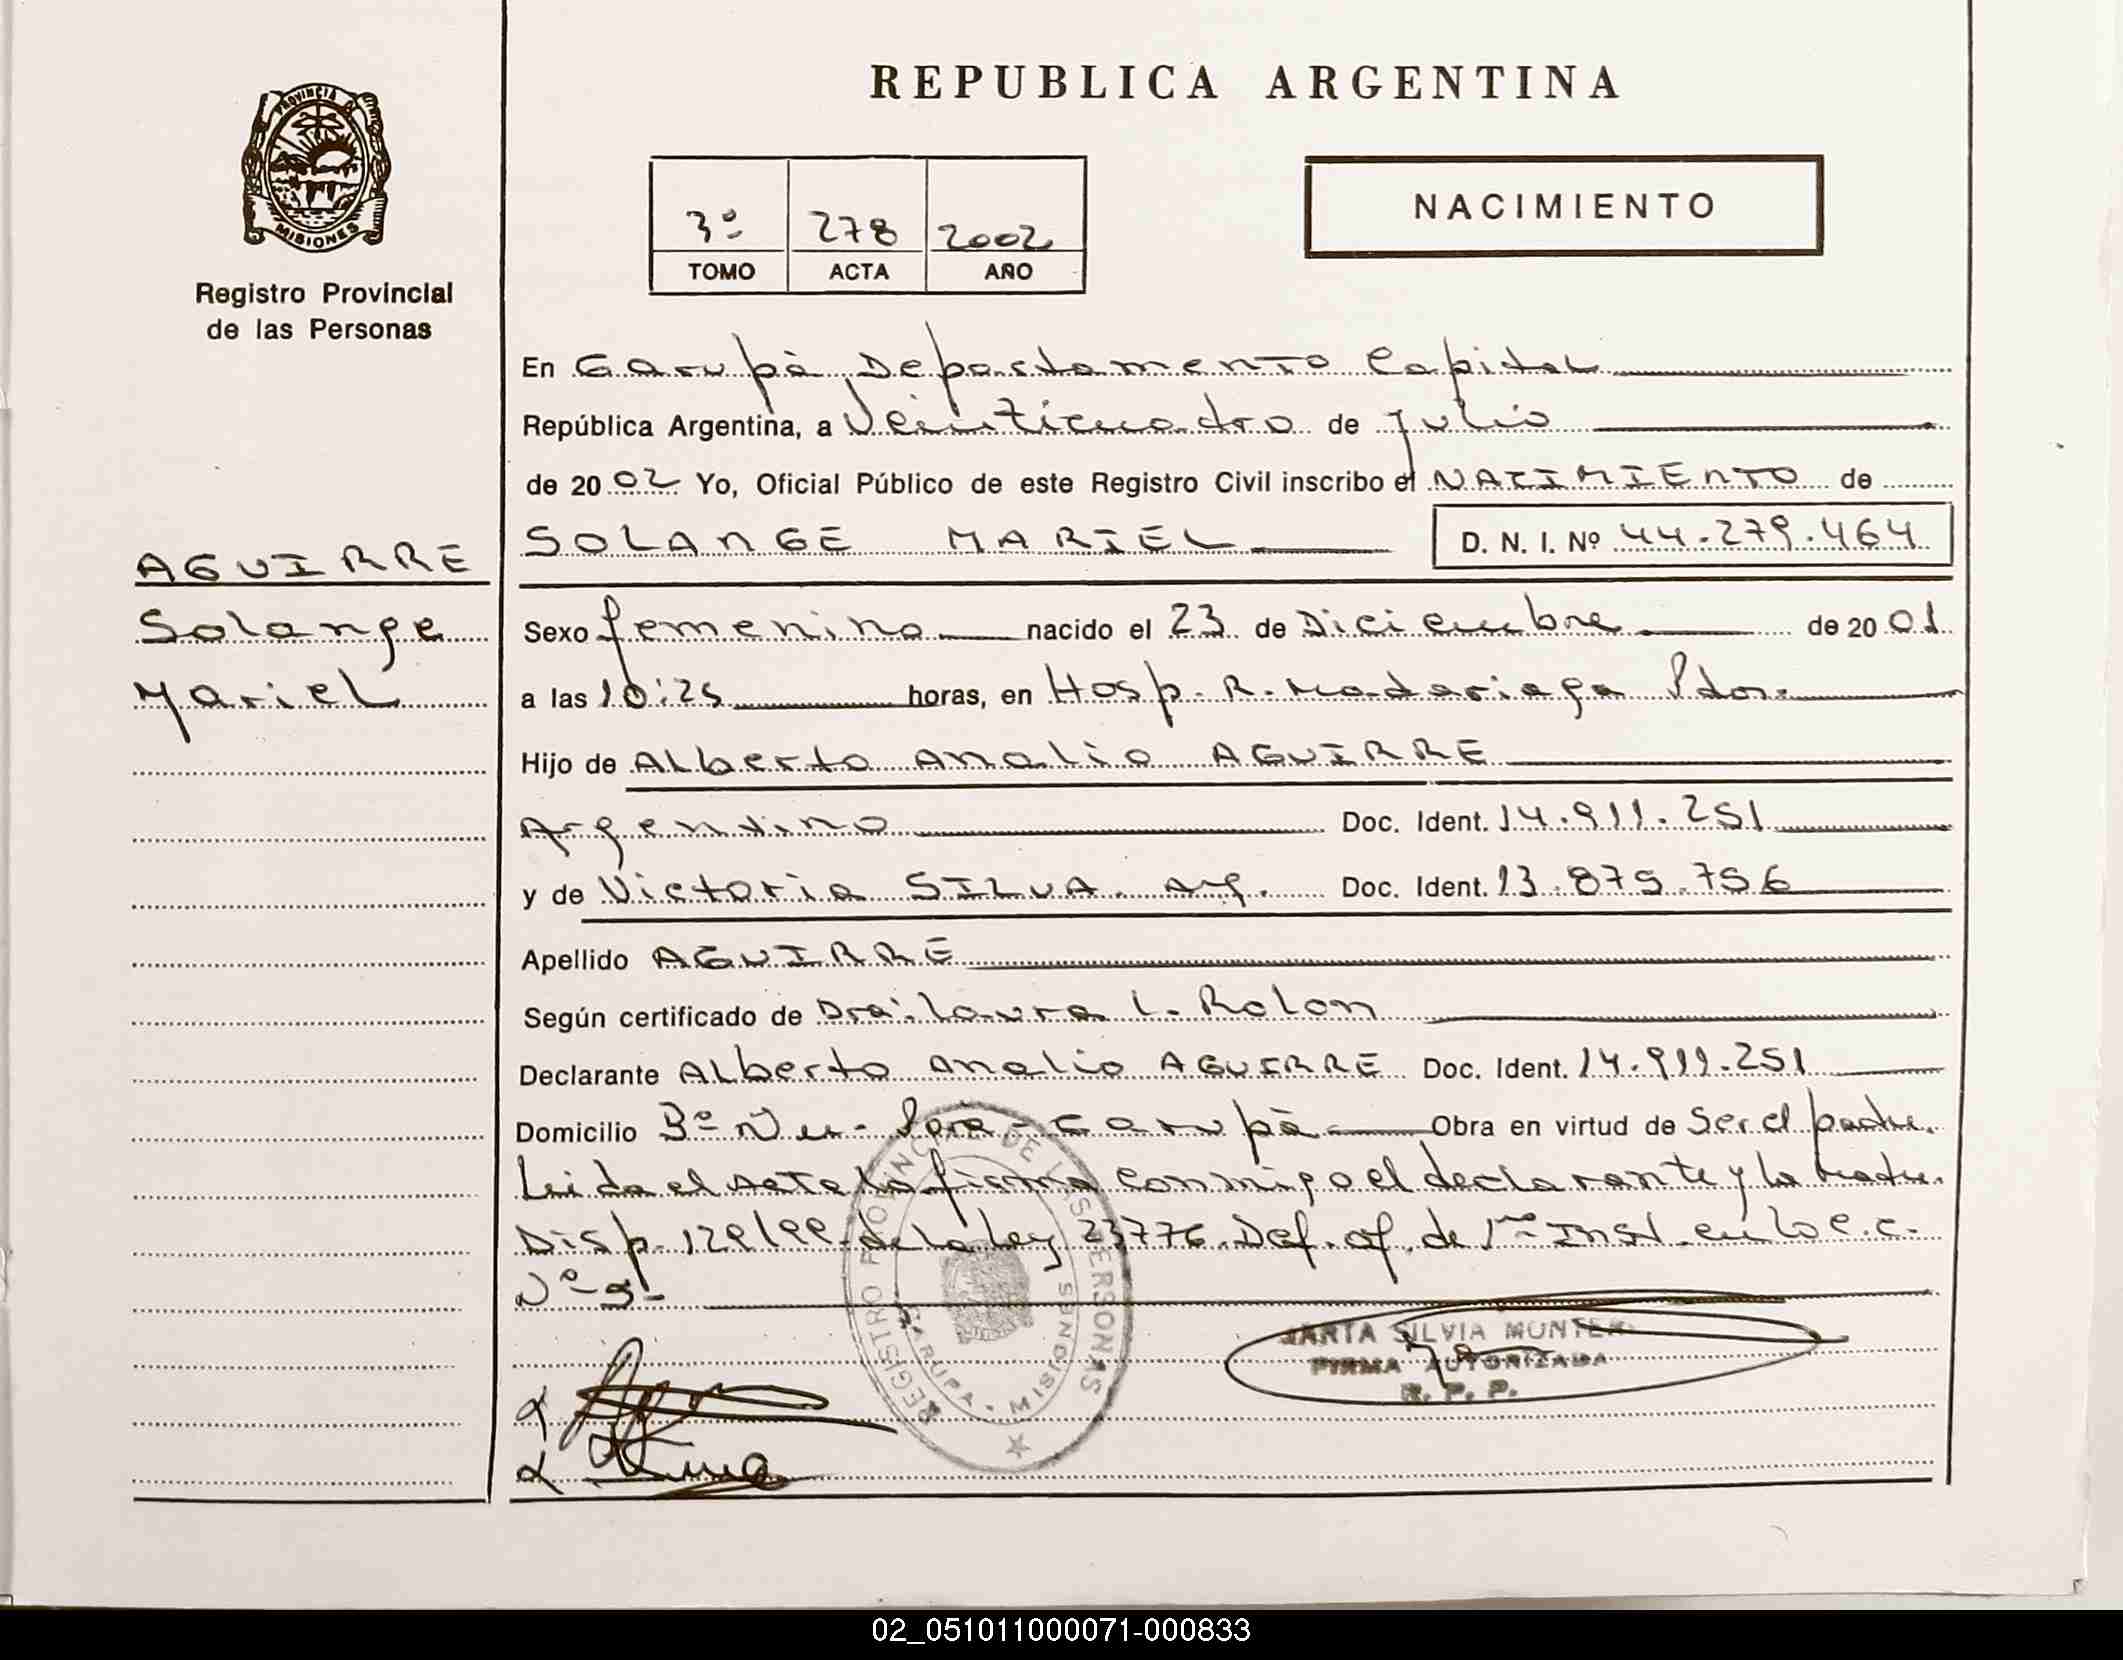 REPUBLICA ARGENTINA
PROVINCIA DE
MISIONES
Registro Provincial
de las Personas
3º 278 2002
TOMO ACTA AÑO
NACIMIENTO
En Garupà, Departamento Capital
República Argentina, a Veinticuatro de Julio
de 2002 Yo, Oficial Público de este Registro Civil inscribo el NACIMIENTO de
SOLANGE MARIEL D. N. I. Nº 44.279.464
AGUIRRE
Solange
Mariel
Sexo femenino nacido el 23 de Diciembre de 2001
a las 10:25 horas, en Hosp. R. Madariaga Pdas.
Hijo de Alberto Analio AGUIRRE
Argentino Doc. Ident. 14.911.251
y de Victoria SILVA. Arg. Doc. Ident. 13.875.756
Apellido AGUIRRE
Según certificado de Dra. Laura L. Rolon
Declarante Alberto Analio AGUIRRE Doc. Ident. 14.911.251
Domicilio Bº Nu- Porà- Garupà Obra en virtud de Ser el padre.
Leida el acta la firma conmigo el declarante y la madre.
Disp. 129/99 de la ley 23776. Def. of. de 1ra Inst. en lo C.C.
Nº
REGISTRO PROVINCIAL DE LAS PERSONAS
GARUPA - MISIONES
MARTA SILVIA
FIRMA AUTORIZADA
R. P. P.
02_051011000071-000833